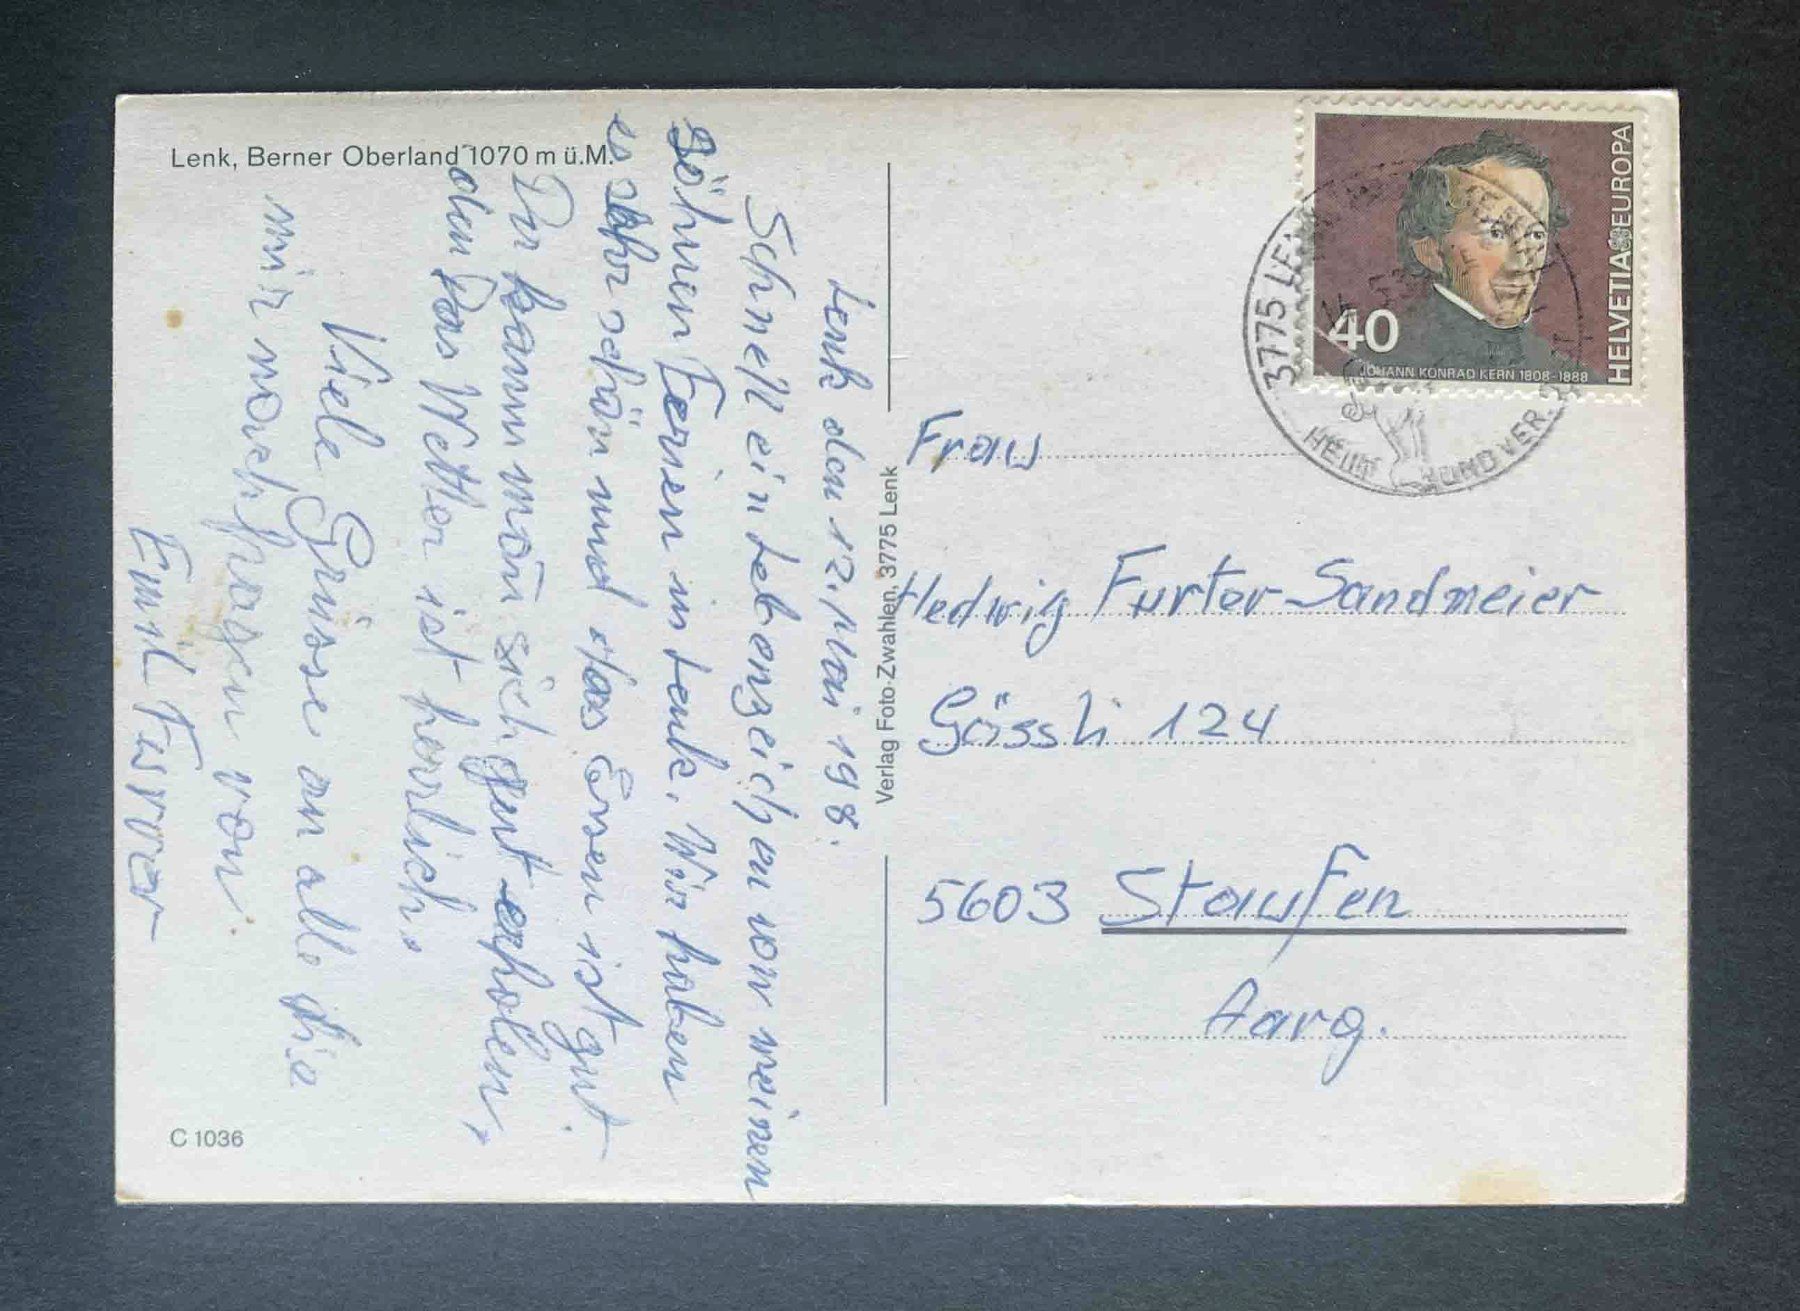 Lenk, Berner Oberland 1070 m ü.M.
Lenk den 12. Mai 198.
Schnell ein Lebenzeichen von meinen
schönen Ferien in Lenk. Wir haben
es sehr schön und das Essen ist gut.
Da kann man sich gut erholen,
den das Wetter ist herlich.
Viele Grüsse an alle die
mir nach fragen von
Emil
Verlag Foto-Zwahlen, 3775 Lenk
HELVETIA EUROPA
40
JOHANN KONRAD KERN 1808-1888
3775 LE
HEIM UND VER
Frau
Hedwig Furter-Sandmeier
Gässli 124
5603 Staufen
Aarg.
C 1036